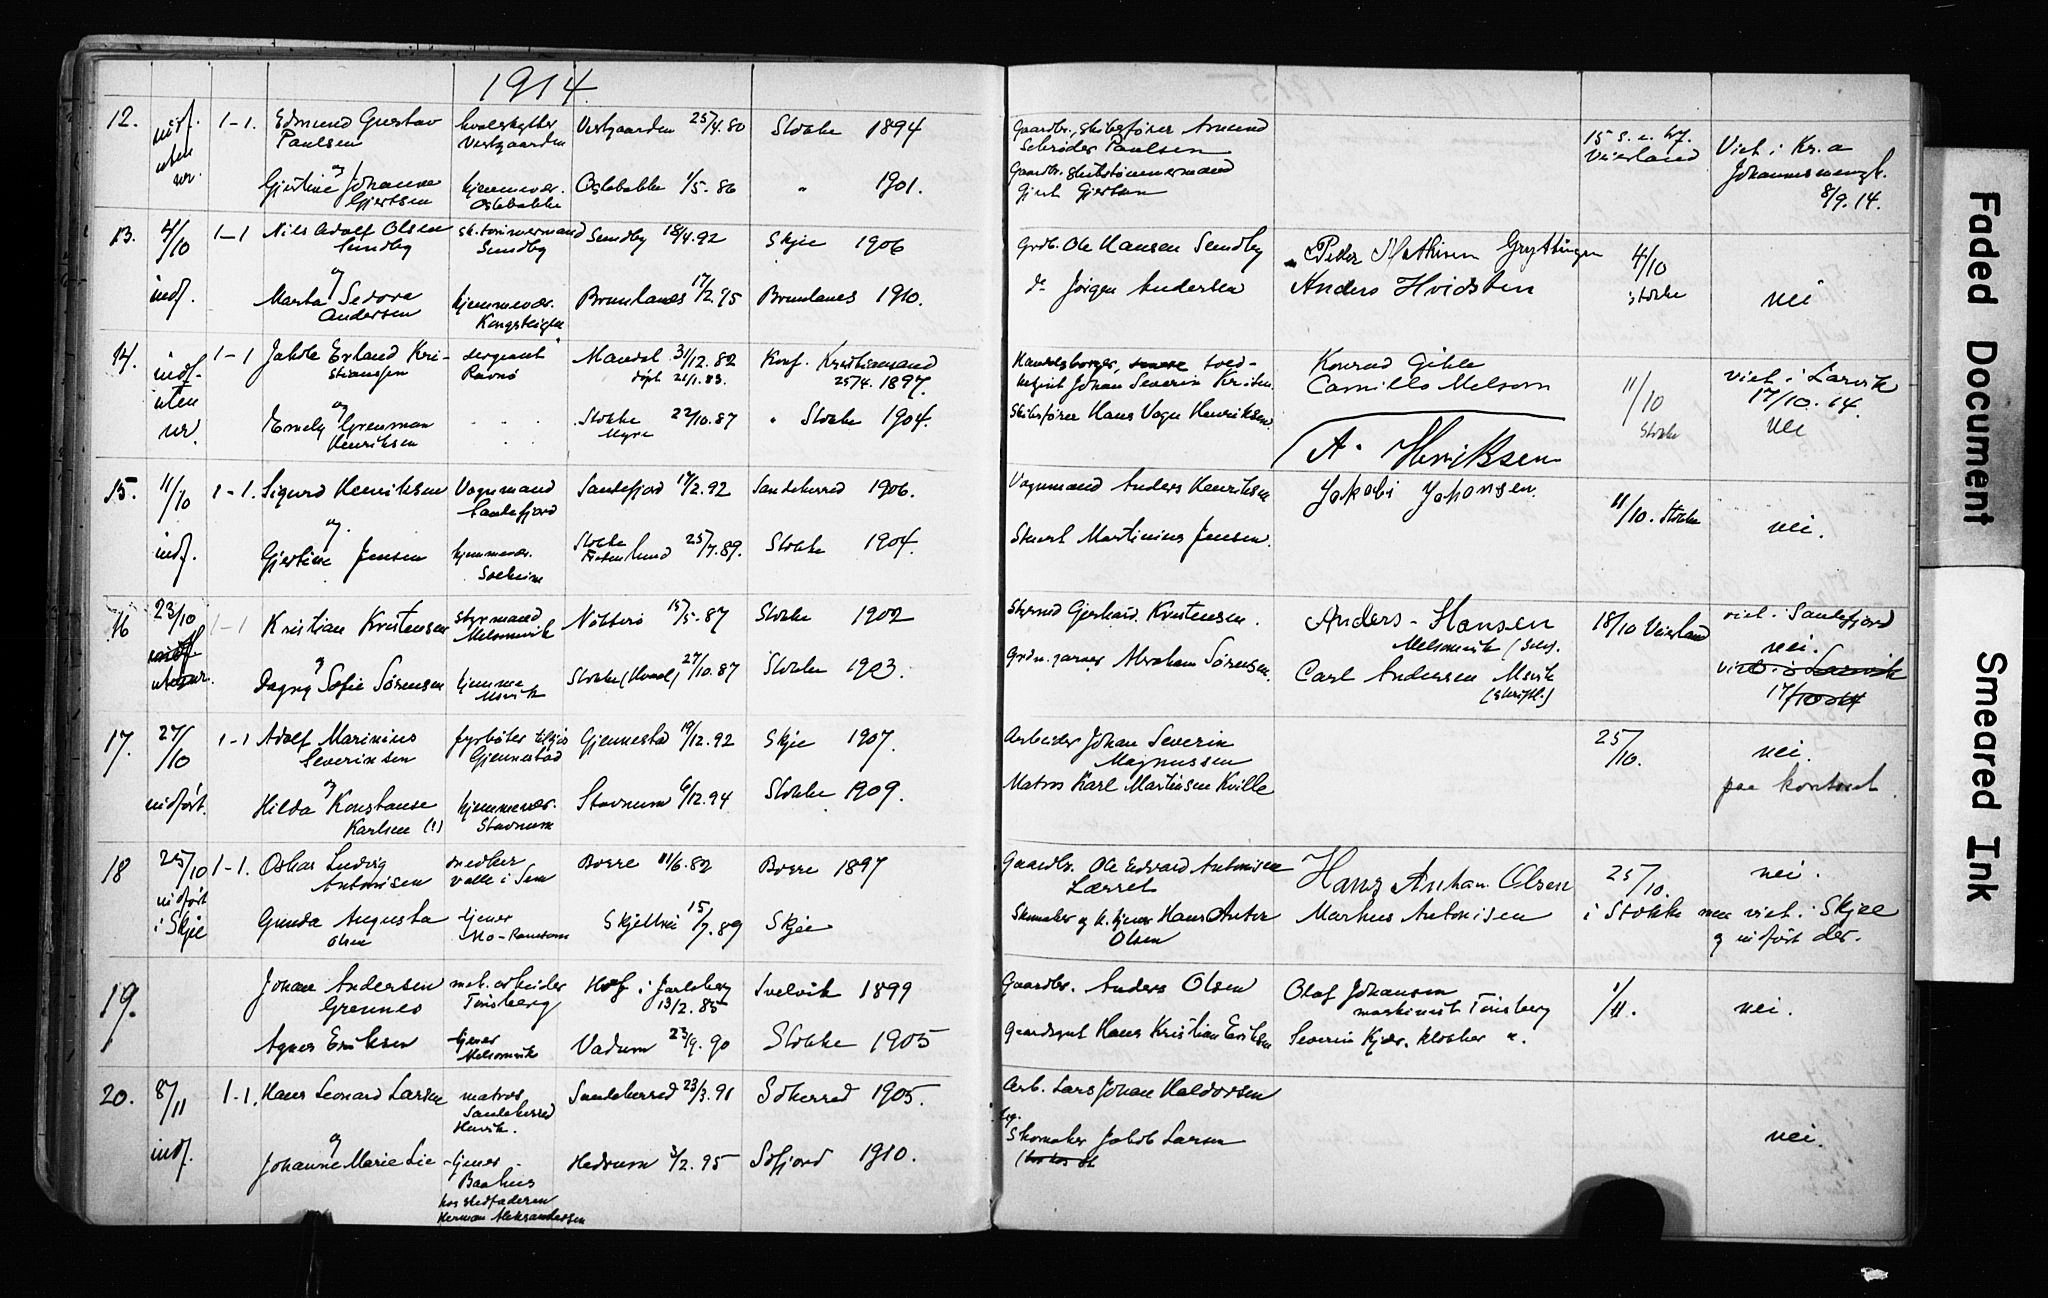 1914.
12. indf. uten nr. 1-1. Edmund Gustav Paulsen
hvalskytter Vestgaarden
Vestgaarden 25/4.80
Stokke 1894
Gaardbr., skibsfører Amund Schrøder Paulsen
15 s. e. tr. Veierland
Viet i Kr.a Johannesmengh. 8/9.14.
og
Gjertine Johanne Gjertsen
hjemmevær. Oslebakke
Oslebakke 1/5.86
" 1901.
Gaardbr. skibstømmermand Gjert Gjertsen
13. 4/10 indf. 1-1 Nils Adolf Olsen Sundby
sk.tømmermand Sundby
Sundby 18/4.92
Skjee 1906
Grdb. Ole Hansen Sundby
Peder Mathisen Gryttingen
4/10 Stokke
nei
og
Marta Sedora Andersen
hjemmevær.
Brunlanes 17/2.95
Brunlanes 1910.
do Jørgen Andersen
Anders Hvidsten
14. indf. uten nr. 1-1 Jakob Erland Kristianssen
sergeant Ravnø
Mandal 31/12.82 døpt 21/1.83.
Konf. Kristianssand 25/4. 1897.
Handelsborger, toldbetjent Johan Severin Kristen.
Konrad Gihle
Camillo Melsom
11/10 Stokke
viet i Larvik 17/10.14.
nei
og
Emely Grenman Henriksen
Stokke Myre 22/10.87
" Stokke 1904.
Skibsfører Hans Vagn Henriksen.
A. Henriksen
15. 11/10 indf. 1-1. Sigurd Henriksen
Vognmand Sandefjord
Sandefjord 17/2.92
Sandeherred 1906.
Vognmand Anders Henriksen
Jakobi Johansen.
11/10. Stokke
nei.
og
Gjertine Jensen
hjemmevær. Solheim
Stokke 25/7.89.
Stokke 1904.
Stuert Martinius Jensen.
16 23/10 uten nr. 1-1 Kristian Kristensen
Styrmand Melsomvik
Nøtterø 15/5.87
Stokke 1902
Styrmd Gerhard Kristensen.
Anders Hansen Melsomvik (sen.
18/10 Veierland
viet i Sandefjord
nei.
viet i Larvik
17/10.14
og
Dagny Sofie Sørensen
hjemme Msvik
Stokke (Hvaal) 27/10.87
Stokke 1903.
Abraham Sørensen.
Carl Andersen Msvik (skriftl.)
17. 27/10 indført. 1-1 Adolf Marinius Severinsen
fyrbøter Gjennestad
Gjennestad 19/12.92
Skjee 1907.
Arbeider Johan Severin Magnussen
25/10.
nei.
og
Hilda Konstanse Karlsen (!)
hjemmevær. Stavnum
Stavnum 6/12.94
Stokke 1909.
Matros Karl Martinsen Kville
paa kontoret.
18 25/10 indført i Skjee 1-1. Oskar Ludvig Antonisen
snedker Valle i Sem
Borre 11/6.82
Borre 1897
Gaardbr. Ole Edvard Antonisen
Hans Anthan Olsen
25/10. i Stokke
nei.
men viet i Skjee og indført der.
Gunda Augusta Olsen
tjener
Skjellvik 15/7.89
Skjee
Skomaker og k.tjener Hans Anton Olsen
Markus Antonisen
19. Johan Andersen Grennes
mek. arbeider Tønsberg
Hof i Jarlsberg 13/2.85
Svelvik 1899
Gaardbr. Anders Olsen
Olaf Johansen maskinist Tønsberg
1/11.
nei.
Agnes Eriksen
tjener Melsomvik
Vadum 23/9.90
Stokke 1905
Gaardsgut Hans Kristian Eriksen
Severin Kjær. klokker ".
20. 8/11 indf. 1-1. Hans Leonard Larsen
matros Sandeherred
Sandeherred 23/3.91
Sdherred 1905.
Arb. Lars Johan Haldorsen
og
Johanne Marie Lie
tjener Baahus hos stedfaderen Herman Aleksandersen
Hedrum 2/2.95
Sdfjord 1910.
Skomaker Jakob Larsen
nei.
Faded Document
Smeared Ink